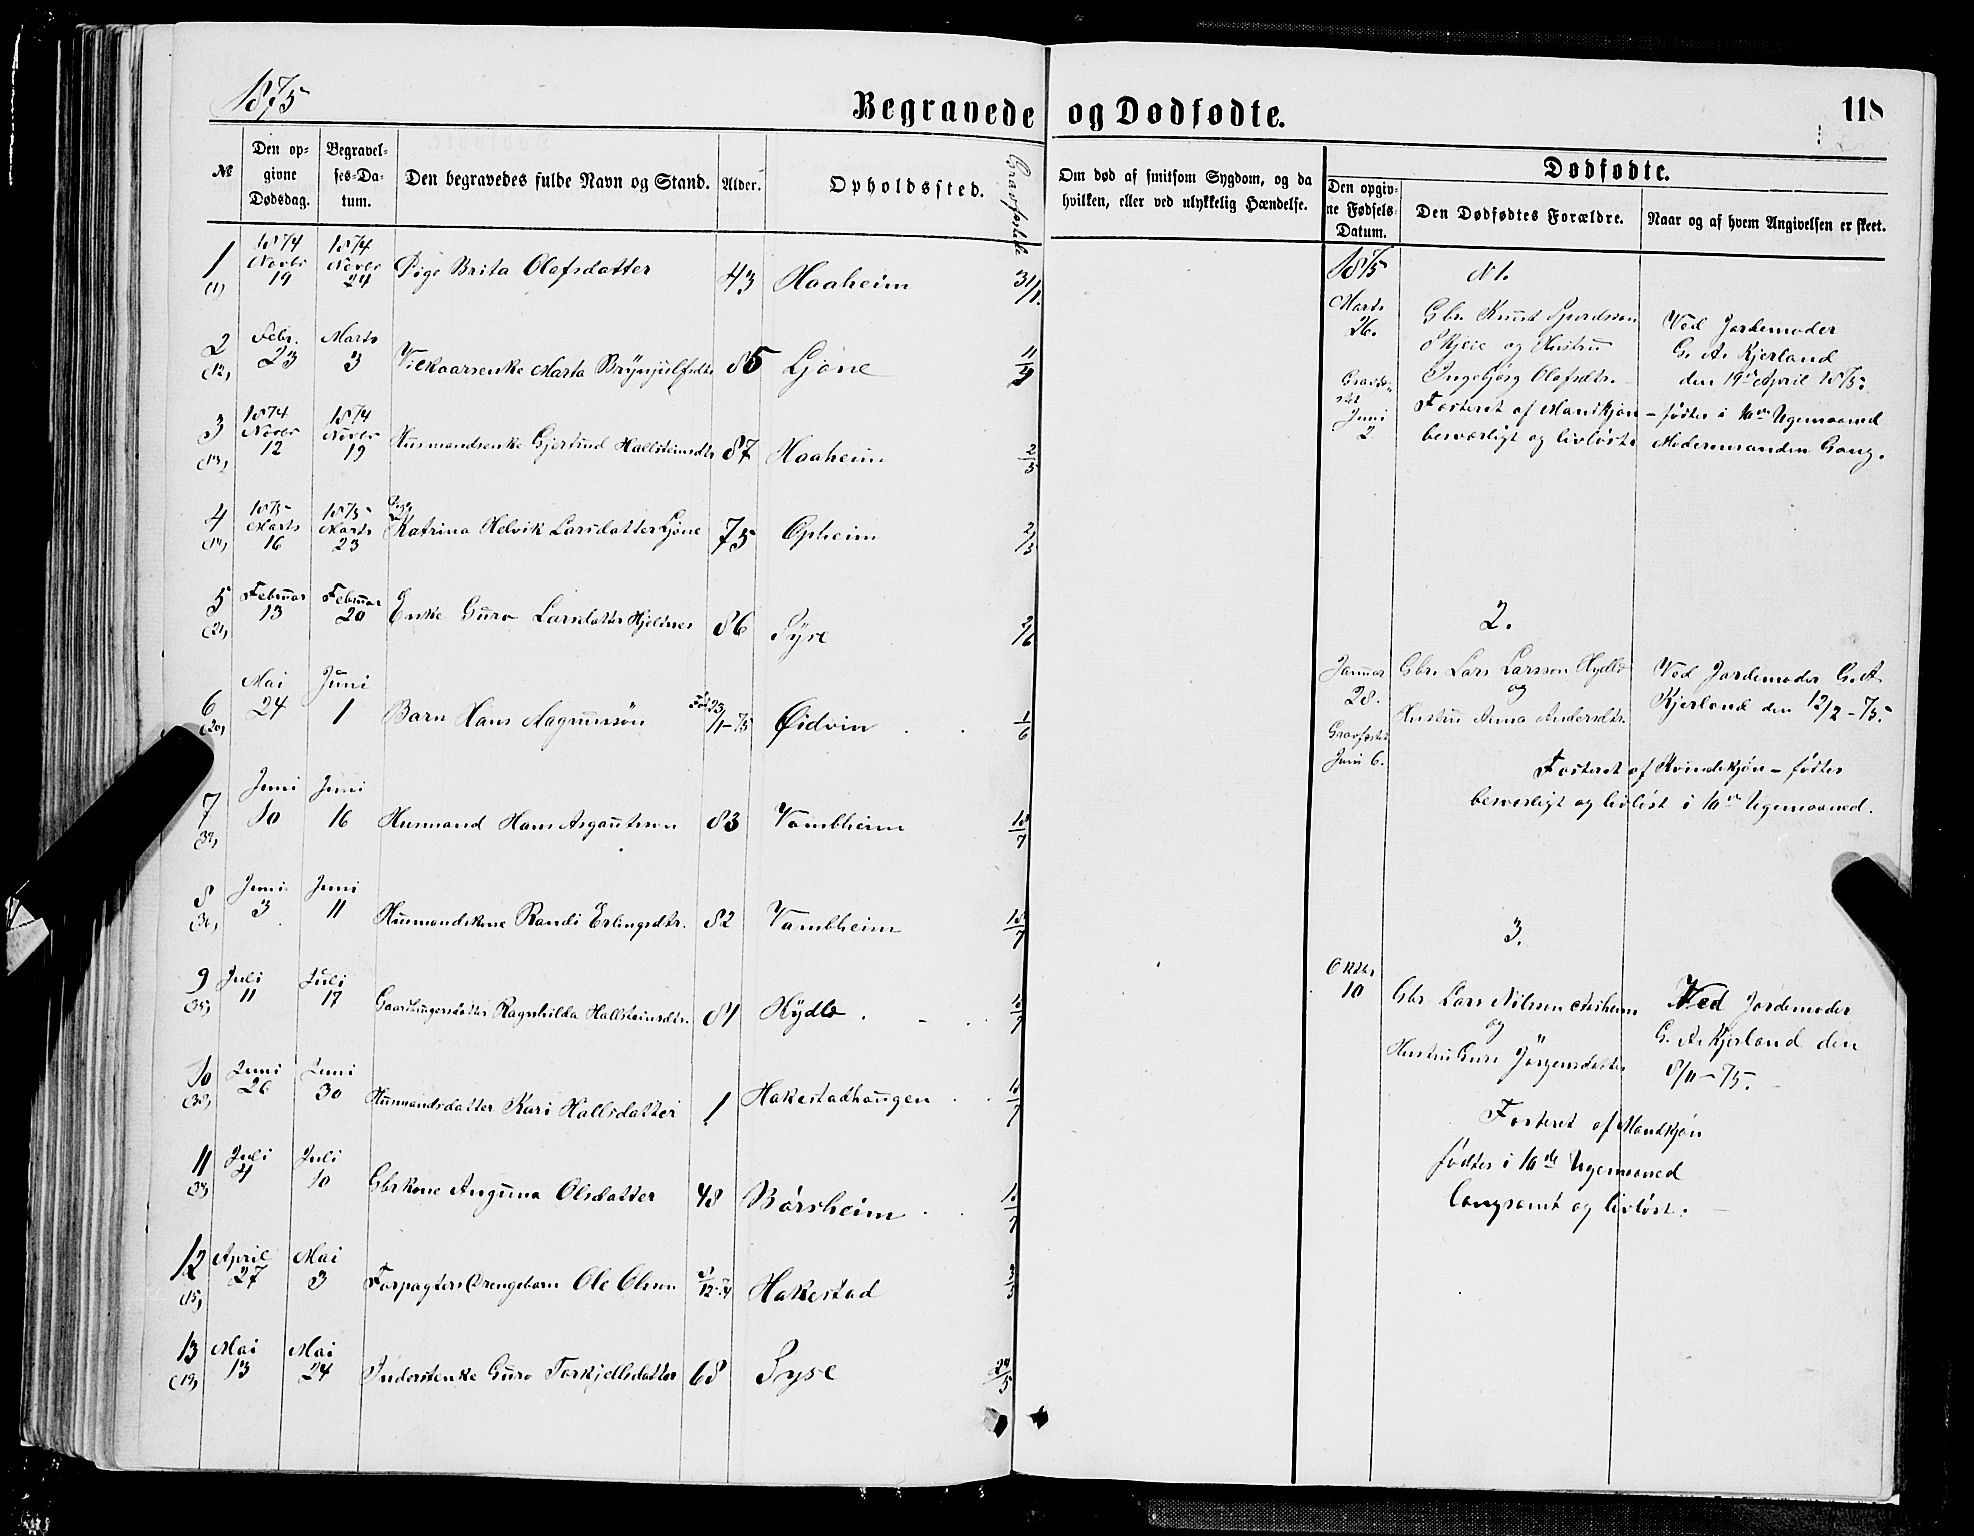 1875
Begravede og Dødfødte.
118
№
Den opgivne Dødsdag.
Begravelses-Datum.
Den begravedes fulde Navn og Stand.
Alder.
Opholdssted.
Gravfæstelse
Om død af smitsom Sygdom, og da hvilken, eller ved ulykkelig Hændelse.
Dødfødte.
Den opgivne Fødsels-Datum.
Den Dødfødtes Forældre.
Naar og af hvem Angivelsen er skeet.
1 (1) 1874 Novbr 19 1874 Novbr 24 Pige Brita Olafsdatter 43 Haaheim 31/1.
2 (12) Febr. 23 Marts 3 Vilkaarsenke Marta Brynjulfsdtr 85 Ljone 11/4
3 (13) 1874 Novbr 12 1874 Novbr 19 Husmandsenke Gjertrud Hallsteinsdtr 87 Haaheim 2/5
4 (14) 1875 Marts 16 1875 Marts 23 Pige Katrina Helvik Larsdatter Ljone 75 Opheim 2/5
5 (21) Februar 13 Februar 20 Enke Guro Larsdatter Hjeltnes 86 Syse 2/6
6 (20) Mai 24 Juni 1 Barn Hans Magnussøn 23/1-75 Øidvin 1/6
7 Juni 10 Juni 16 Husmand Hans Asgautsson 83 Vambheim 18/7
8 Juni 3 Juni 11 Husmandskone Randi Erlingsdtr. 82 Vambheim 18/7
9 Juli 11 Juli 17 Ragnhilda Hallsteinsdtr. 84 Kydle 18/7
10 Juni 26 Juni 30 Husmandsdatter Kari Hallsdatter 1 Hakestadhaugen 18/7
11 Juli 4 Juli 10 Gbrkone Anguna Olsdatter 48 Børsheim 18/7
12 (15) April 27 Mai 3 Forpagters Drengebarn Ole Olsen Hakestad
13 (19) Mai 13 Mai 24 Inderstenke Guro Torkjellsdatter 68 Syse 24/5
1875
N 1.
Marts 26.
Gbr. Knut Sjurdsson
Skjeie og Hustru
Ingebjørg Olafsdtr.
Ved Jordemoder
G. A. Kjerland
den 19de April 1875.
Juni 2
Fosteret af Mandkjøn – fødtes i 10de Ugemaaned
besværligt og livløst. Modermunden Gang.
2.
Januar 28.
Gbr. Lars Larsson Kydle
og
Hustru Anna Andersdtr.
Ved Jordemoder G. A.
Kjerland den 12/2 – 75.
Gravfæstet
Juni 6.
Fosteret af Kvindekjøn – fødtes
besværligt og livløst i 10de Ugemaaned.
3.
Oktbr 10
Gbr. Lars Nilssen Aasheim
og
Hustru Guri Jörgensdatter
Ved Jordemoder
G. A. Kjerland den
8/11 – 75.
Fosteret af Mandkjøn
fødtes i 10de Ugemaaned
langsomt og livløst.